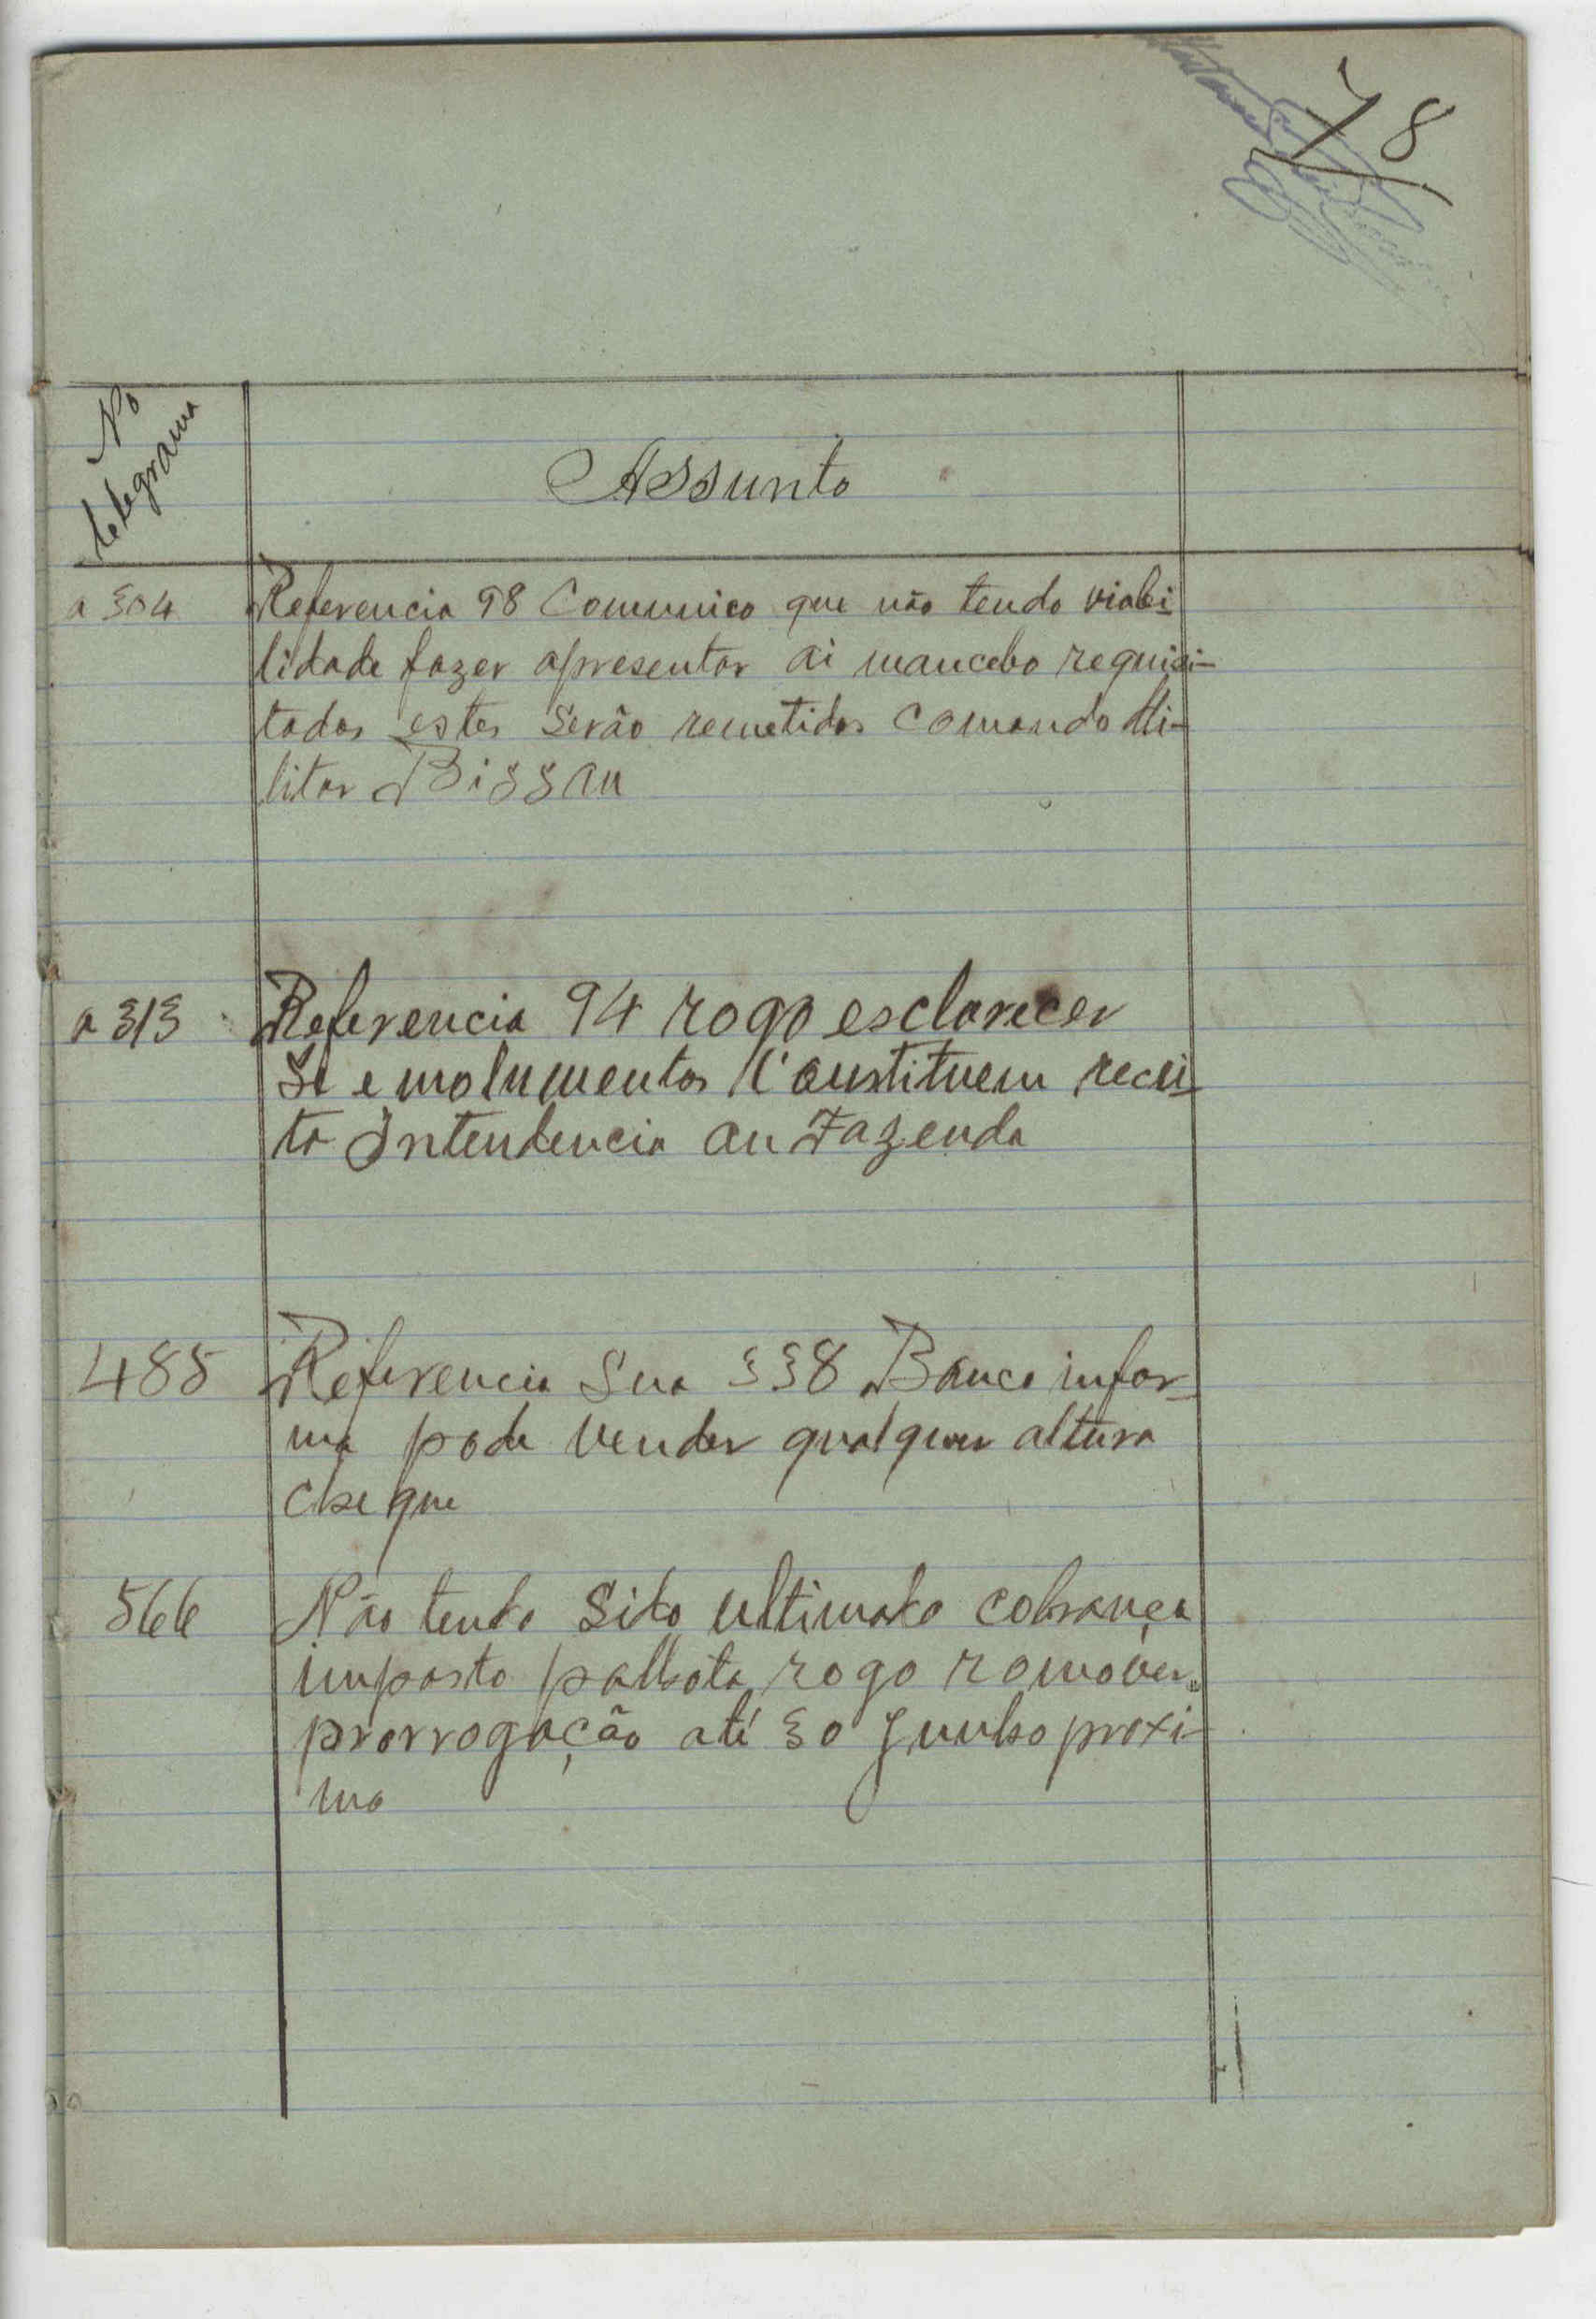 78
Nº
telegrama
Assunto
a 304 Referencia 98 Comunico que não tendo viabi
lidade fazer apresentar ai mancebo requisi-
tados estes serão remetidos Comando Mi-
litar Bissau
a 313 Referencia 94 rogo esclarecer
se emolumentos Constituem recei
ta Intendencia au Fazenda
485 Referencia Sua 338 Banco infor-
ma pode vender qualquer altura
cheque
566 Não tendo sido ultimado cobrança
imposto palhota rogo romover
prorrogação até 30 Junho proxi-
mo